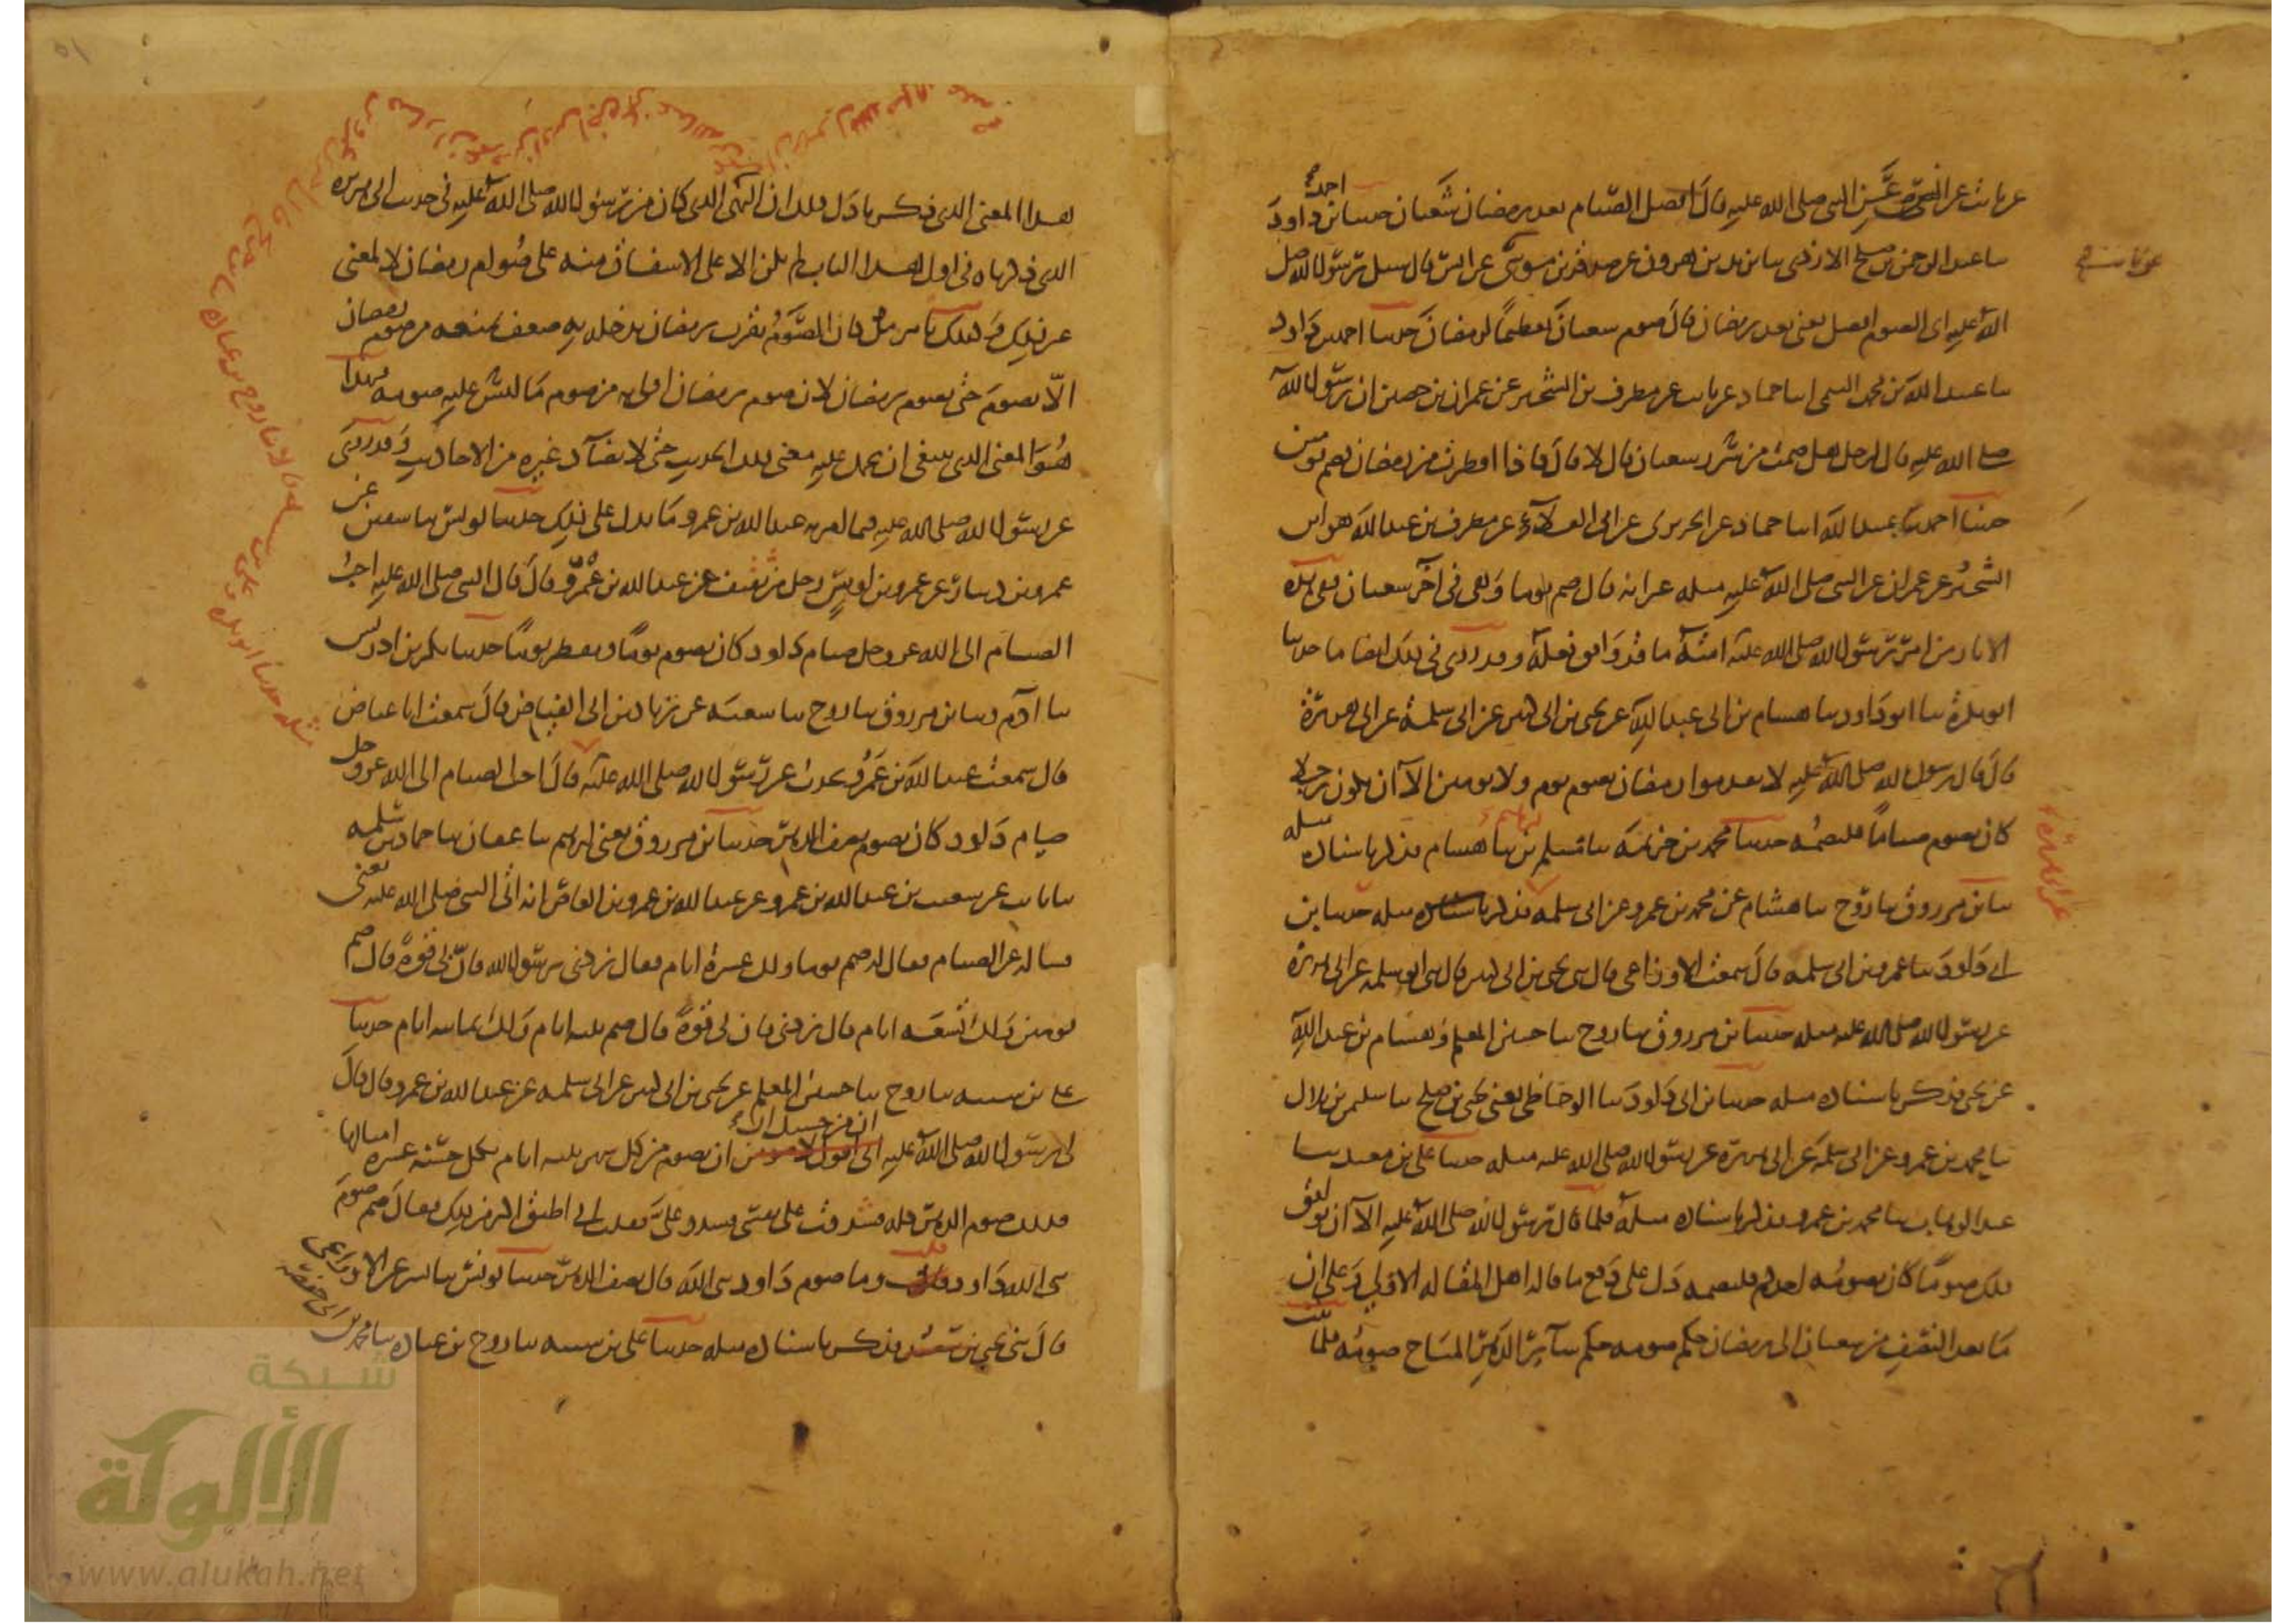 عن ثابت عن انس عن النبي صلى الله عليه قال افضل الصيام بعد رمضان شعبان حدثنا احمد بن داود
سا عبد الرحمن بن صلح الازدي سا يزيد بن هرون عن صدقة بن موسى عن انس قال سئل رسول الله صلى
الله عليه اى الصوم افضل يعنى بعد رمضان قال صوم شعبان تعظيما لرمضان حدثنا احمد بن داود
سا عبد الله بن محمد التيمى انا حماد عن ثابت عن مطرف بن الشخير عن عمران بن حصين ان رسول الله
صلى الله عليه قال لرجل هل صمت من سرر شعبان قال لا قال فاذا افطرت من رمضان فصم يومين
حدثنا احمد سا عبيد الله انا حماد عن الجريرى عن ابى العلاء عن مطرف بن عبد الله هو ابن
الشخير عن عمران عن النبى صلى الله عليه مثله غير انه قال صم يوما ففى اخر شعبان ففى هذه
الاثار من امر رسول الله صلى الله عليه امته ما قد وافق فعله وقد روى فى ذلك ايضا ما حدثنا
ابو بكرة سا ابو داود سا هشام بن ابى عبد الله عن يحيى بن ابى كثير عن ابى سلمة عن ابى هريرة
قال قال رسول الله صلى الله عليه لا تقدموا رمضان بصوم يوم ولا يومين الا ان يكون رجلا
كان يصوم صياما فليصمه حدثنا محمد بن خزيمة سا مسلم بن ابراهيم سا هشام فذكر باسناده مثله
سا ابن مرزوق سا روح سا هشام عن محمد بن عمرو عن ابى سلمة فذكر باسناده مثله حدثنا ابن
ابى داود سا عمرو بن ابى سلمة قال سمعت الاوزاعى قال سى يحيى بن ابى كثير قال سى ابو سلمة عن ابى هريرة
عن رسول الله صلى الله عليه مثله حدثنا ابن مرزوق سا روح سا حسين المعلم وهشام بن عبد الله
عن يحيى فذكر باسناده مثله حدثنا ابن ابى داود سا الوحاظى يعنى يحيى بن صلح سا سليمن بن بلال
سا محمد بن عمرو عن ابى سلمة عن ابى هريرة عن رسول الله صلى الله عليه مثله حدثنا على بن معبد سا
عبد الوهاب سا محمد بن عمرو فذكر باسناده مثله فلما قال رسول الله صلى الله عليه الا ان يوافق
ذلك صوما كان يصومه احدكم فليصمه دل على دفع ما قاله اهل المقالة الاولى وعلى ان
ما بعد النصف من شعبان الى رمضان حكم صومه حكم سائر الدهر المباح صومه فلما ثبت
هذا المعنى الذى ذكرنا دل ذلك ان النهى الذى كان من رسول الله صلى الله عليه فى حديث ابى هريرة
الذى ذكرناه فى اول هذا الباب لم يكن الا على الاشفاق منه على صوام رمضان لا لمعنى
غير ذلك وكذلك نامر من كان الصوم بقرب رمضان يدخله به ضعف يمنعه من صوم رمضان
الا يصوم حتى يصوم رمضان لان صوم رمضان اولى به من صوم ما ليس عليه صومه فهذا
هو المعنى الذى ينبغى ان يحمل عليه معنى ذلك الحديث حتى لا يضاد غيره من الاحاديث وقد روى
عن رسول الله صلى الله عليه فيما امر به عبد الله بن عمرو ما يدل على ذلك حدثنا يونس سا سفين عن
عمرو بن دينار عن عمرو بن اوس رجل من ثقيف عن عبد الله بن عمرو قال قال النبى صلى الله عليه احب
الصيام الى الله عز وجل صيام داود كان يصوم يوما ويفطر يوما حدثنا بكر بن ادريس
سا ادم وسا ابن مرزوق سا روح سا شعبة عن زياد بن ابى الفياض قال سمعت ابا عياض
قال سمعت عبد الله بن عمرو يحدث عن رسول الله صلى الله عليه قال احب الصيام الى الله عز وجل
صيام داود كان يصوم نصف الدهر حدثنا ابن مرزوق يعنى ابرهيم سا عفان سا حماد بن سلمة
سا ثابت عن شعيب بن عبد الله بن عمرو عن عبد الله بن عمرو بن العاص انه اتى النبى صلى الله عليه يعنى
فساله عن الصيام فقال له صم يوما ولك عشرة ايام فقال زدنى يرسول الله فان بى قوة قال صم
يومين ولك تسعة ايام قال زدنى فان لى قوة قال صم ثلثة ايام ولك ثمانية ايام حدثنا
على بن شيبة سا روح سا حسين المعلم عن يحيى بن ابى كثير عن ابى سلمة عن عبد الله بن عمرو قال قال
لى رسول الله صلى الله عليه ان من حسبك ان تصوم من كل شهر ثلثة ايام بكل حسنة عشرة امثالها
فذلك صوم الدهر كله فشددت على نفسى فشدد على فقلت انى اطيق اكثر من ذلك فقال صم صوم
نبى الله داود قلت وما صوم داود نبى الله قال نصف الدهر حدثنا يونس سا بشر عن الاوزاعى
قال سى يحيى بن فذكر باسناده مثله حدثنا على بن شيبة سا روح بن عبادة سا محمد بن ابى حفصة
شبكة
الألوكة
www.alukah.net